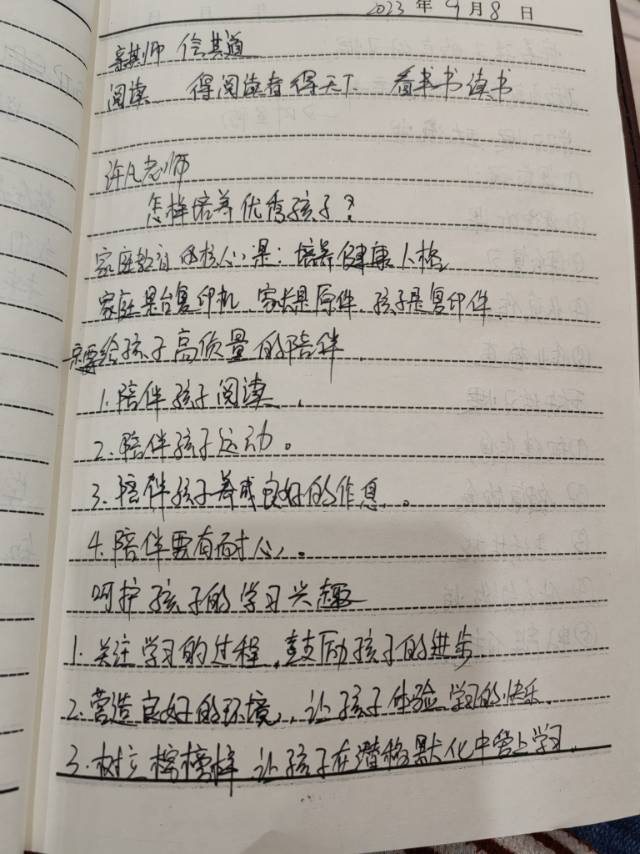 2023年9月8日
亲其师 信其道
阅读 得阅读者得天下 看书书读书
许凡老师
怎样培养优秀孩子？
家庭教育的核心是：培养健康人格
家庭是台复印机、家长是原件、孩子是复印件
要给孩子高质量的陪伴
1.陪伴孩子阅读、
2.陪伴孩子运动。
3.陪伴孩子养成良好的作息。
4.陪伴要有耐心。
呵护孩子的学习兴趣
1.关注学习的过程，鼓励孩子的进步
2.营造良好的环境，让孩子体验学习的快乐
3.树立榜样 让孩子在潜移默化中爱上学习